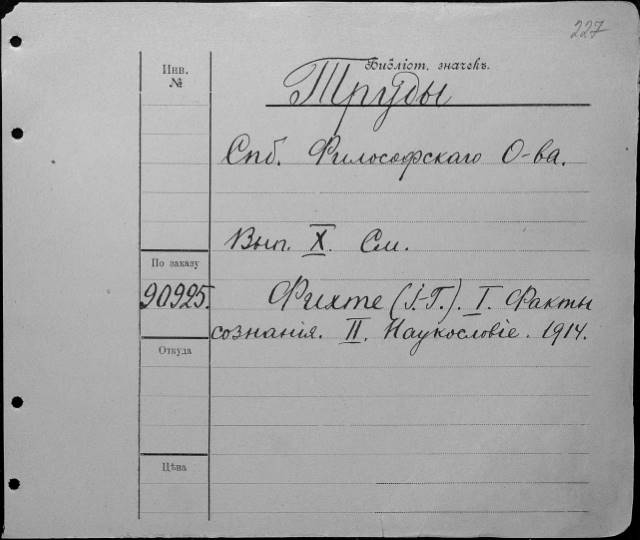 227
Инв.
№
Библіот. значекъ.
Труды
Спб. Философскаго О-ва.
Вып. X. См.
По заказу
90925.
Фихте (І.-Г.). I. Факты
сознанія. II. Наукословіе. 1914.
Откуда
Цѣна